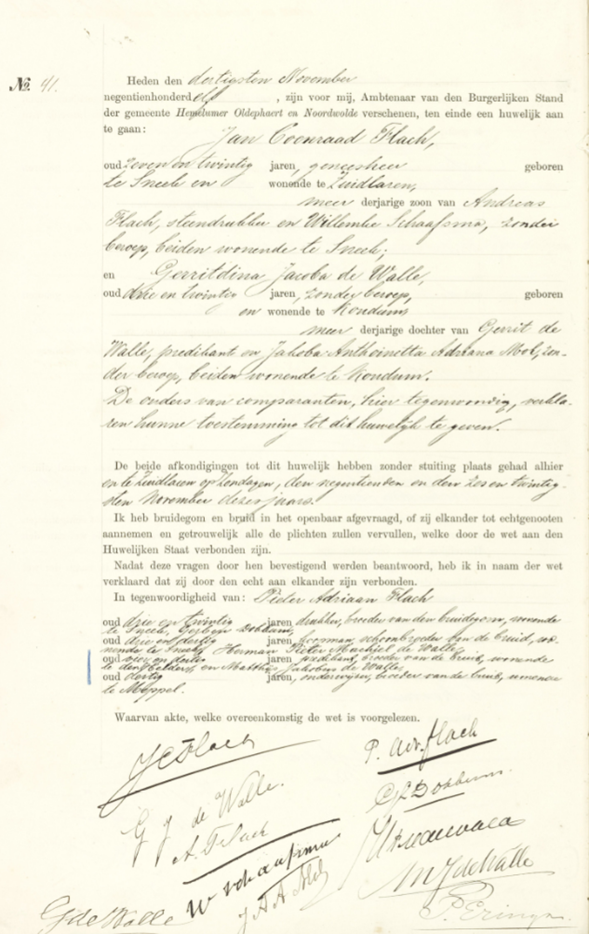 No. 41.
Heden den dertigsten November
negentienhonderd elf , zijn voor mij, Ambtenaar van den Burgerlijken Stand
der gemeente Hemelumer Oldephaert en Noordwolde verschenen, ten einde een huwelijk aan
te gaan:
Jan Coenraad Flach,
oud zeven en twintig jaren, geneesheer geboren
te Sneek en wonende te Zuidlaren,
meer derjarige zoon van Andreas
Flach, steendrukker en Willemke Schaafsma, zonder
beroep, beiden wonende te Sneek;
en Gerritdina Jacoba de Walle,
oud drie en twintig jaren, zonder beroep, geboren
en wonende te Koudum,
meer derjarige dochter van Gerrit de
Walle, predikant en Jakoba Anthoinetta Adriana Mol, zon-
der beroep, beiden wonende te Koudum.
De ouders van comparanten, hier tegenwoordig, verkla-
ren hunne toestemming tot dit huwelijk te geven.
De beide afkondigingen tot dit huwelijk hebben zonder stuiting plaats gehad alhier
en te Zuidlaren op Zondagen, den negentienden en den zes en twintig-
sten November dezes jaars.
Ik heb bruidegom en bruid in het openbaar afgevraagd, of zij elkander tot echtgenooten
aannemen en getrouwelijk alle de plichten zullen vervullen, welke door de wet aan den
Huwelijken Staat verbonden zijn.
Nadat deze vragen door hen bevestigend werden beantwoord, heb ik in naam der wet
verklaard dat zij door den echt aan elkander zijn verbonden.
In tegenwoordigheid van: Pieter Adriaan Flach
oud drie en twintig jaren, drukker, broeder van den bruidegom, wonende
te Sneek, Dobbenu,
oud drie en dertig jaren, schoonbroeder van de bruid, wo-
nende te Sneek, Herman Pieter Machiel de Walle,
oud en dertig jaren predikant, broeder van de bruid, wonende
den Helder, en Matthijs Jakobus de Walle,
oud dertig jaren, onderwijzer, broeder van de bruid, wonende
te Meppel.
Waarvan akte, welke overeenkomstig de wet is voorgelezen.
JCFlach
P. Adr. Flach
G J de Walle.
A. Flach
W Schaafsma
MJdeWalle
J A A Mol
GdeWalle
P. Eringa